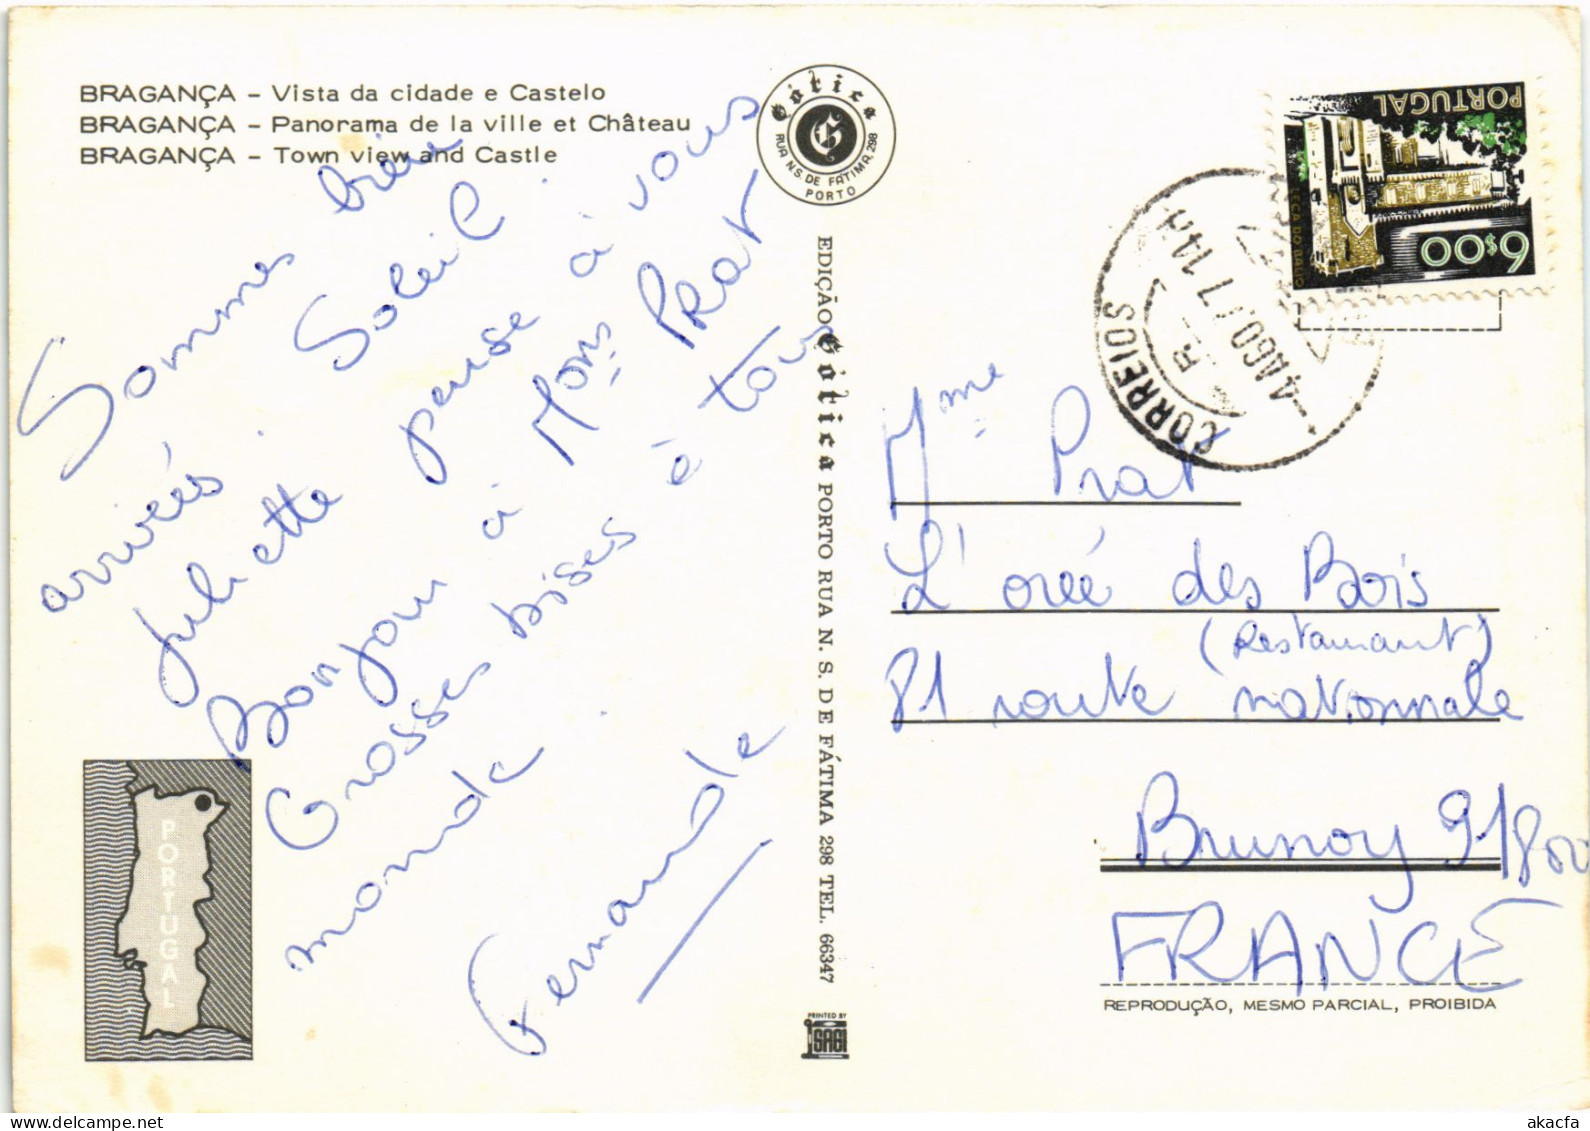 BRAGANÇA – Vista da cidade e Castelo
BRAGANÇA – Panorama de la ville et Château
BRAGANÇA – Town view and Castle
Sommes bien
arrivées Soleil.
Juliette pense à vous
Bonjour à Mons PRAT
Grosses bises à tout
monde
Fernande
PORTUGAL
Gótica
G
RUA N.S. DE FÁTIMA, 298
PORTO
EDIÇÃO Gótica PORTO RUA N. S. DE FÁTIMA 298 TEL. 66347
PRINTED BY
iSAGI
PORTUGAL
6$00
CORREIOS
14H
Mme Prat
L'orée des Bois
(Restaurant)
81 route nationale
Brunoy 91800
FRANCE
REPRODUÇÃO, MESMO PARCIAL, PROIBIDA
akacfa